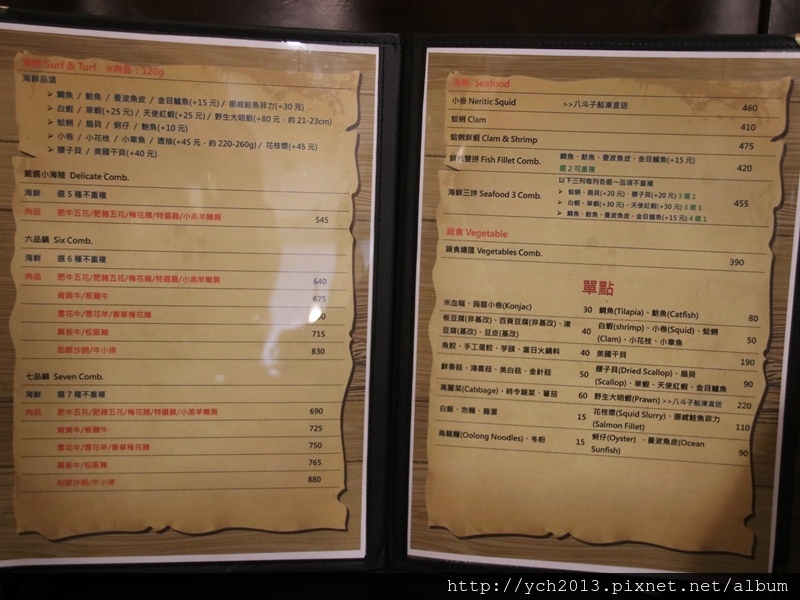 海陸 Surf & Turf ※肉品：120g
海鮮品項
➢ 鯛魚 / 魴魚 / 曼波魚皮 / 金目鱸魚(+15 元) / 挪威鮭魚菲力(+30 元)
➢ 白蝦 / 草蝦(+25 元) / 天使紅蝦(+25 元) / 野生大明蝦(+80 元，約 21-23cm)
➢ 蛤蜊 / 扇貝 / 蚵仔 / 鮑魚(+10 元)
➢ 小卷 / 小花枝 / 小章魚 / 透抽(+45 元，約 220-260g) / 花枝漿(+45 元)
➢ 腰子貝 / 美國干貝(+40 元)
嚴選小海陸 Delicate Comb.
海鮮 選 5 種不重複
肉品 肥牛五花/肥豬五花/梅花豬/特選雞/小羔羊嫩肩 545
六品鍋 Six Comb.
海鮮 選 6 種不重複
肉品 肥牛五花/肥豬五花/梅花豬/特選雞/小羔羊嫩肩 640
背肩牛/板腱牛 675
雪花牛/雪花羊/香草梅花豬
翼板牛/松阪豬 715
肋眼沙朗/牛小排 830
七品鍋 Seven Comb.
海鮮 選 7 種不重複
肉品 肥牛五花/肥豬五花/梅花豬/特選雞/小羔羊嫩肩 690
背肩牛/板腱牛 725
雪花牛/雪花羊/香草梅花豬 750
翼板牛/松阪豬 765
肋眼沙朗/牛小排 880
海鮮 Seafood
小卷 Neritic Squid >>八斗子船凍直送 460
蛤蜊 Clam 410
蛤蜊鮮蝦 Clam & Shrimp 475
鮮魚雙拼 Fish Fillet Comb. 鯛魚、魴魚、曼波魚皮、金目鱸魚(+15 元) 420
選 2 可重複
以下三列每列各選一品項不重複
海鮮三拼 Seafood 3 Comb. 455
➢ 蛤蜊、扇貝(+20 元)、腰子貝(+20 元) 3 選 1
➢ 白蝦、草蝦(+30 元)、天使紅蝦(+30 元) 3 選 1
➢ 鯛魚、魴魚、曼波魚皮、金目鱸魚(+15 元) 4 選 1
蔬食 Vegetable
蔬食總匯 Vegetables Comb. 390
單點
米血糕、蒟蒻小卷(Konjac) 30 鯛魚(Tilapia)、魴魚(Catfish) 80
板豆腐(非基改)、百頁豆腐(非基改)、凍豆腐(基改)、豆皮(基改) 40 白蝦(shrimp)、小卷(Squid)、蛤蜊(Clam)、小花枝、小章魚 50
魚餃、手工蛋餃、芋頭、當日火鍋料 40 美國干貝 190
鮮香菇、鴻喜菇、美白菇、金針菇 50 腰子貝(Dried Scallop)、扇貝(Scallop)、草蝦、天使紅蝦、金目鱸魚 90
高麗菜(Cabbage)、時令蔬菜、蕃茄 60 野生大明蝦(Prawn) >>八斗子船凍直送 220
白飯、泡麵、雞蛋 15 花枝漿(Squid Slurry)、挪威鮭魚菲力(Salmon Fillet) 110
烏龍麵(Oolong Noodles)、冬粉 15 蚵仔(Oyster) 、曼波魚皮(Ocean Sunfish) 90
http://ych2013.pixnet.net/album